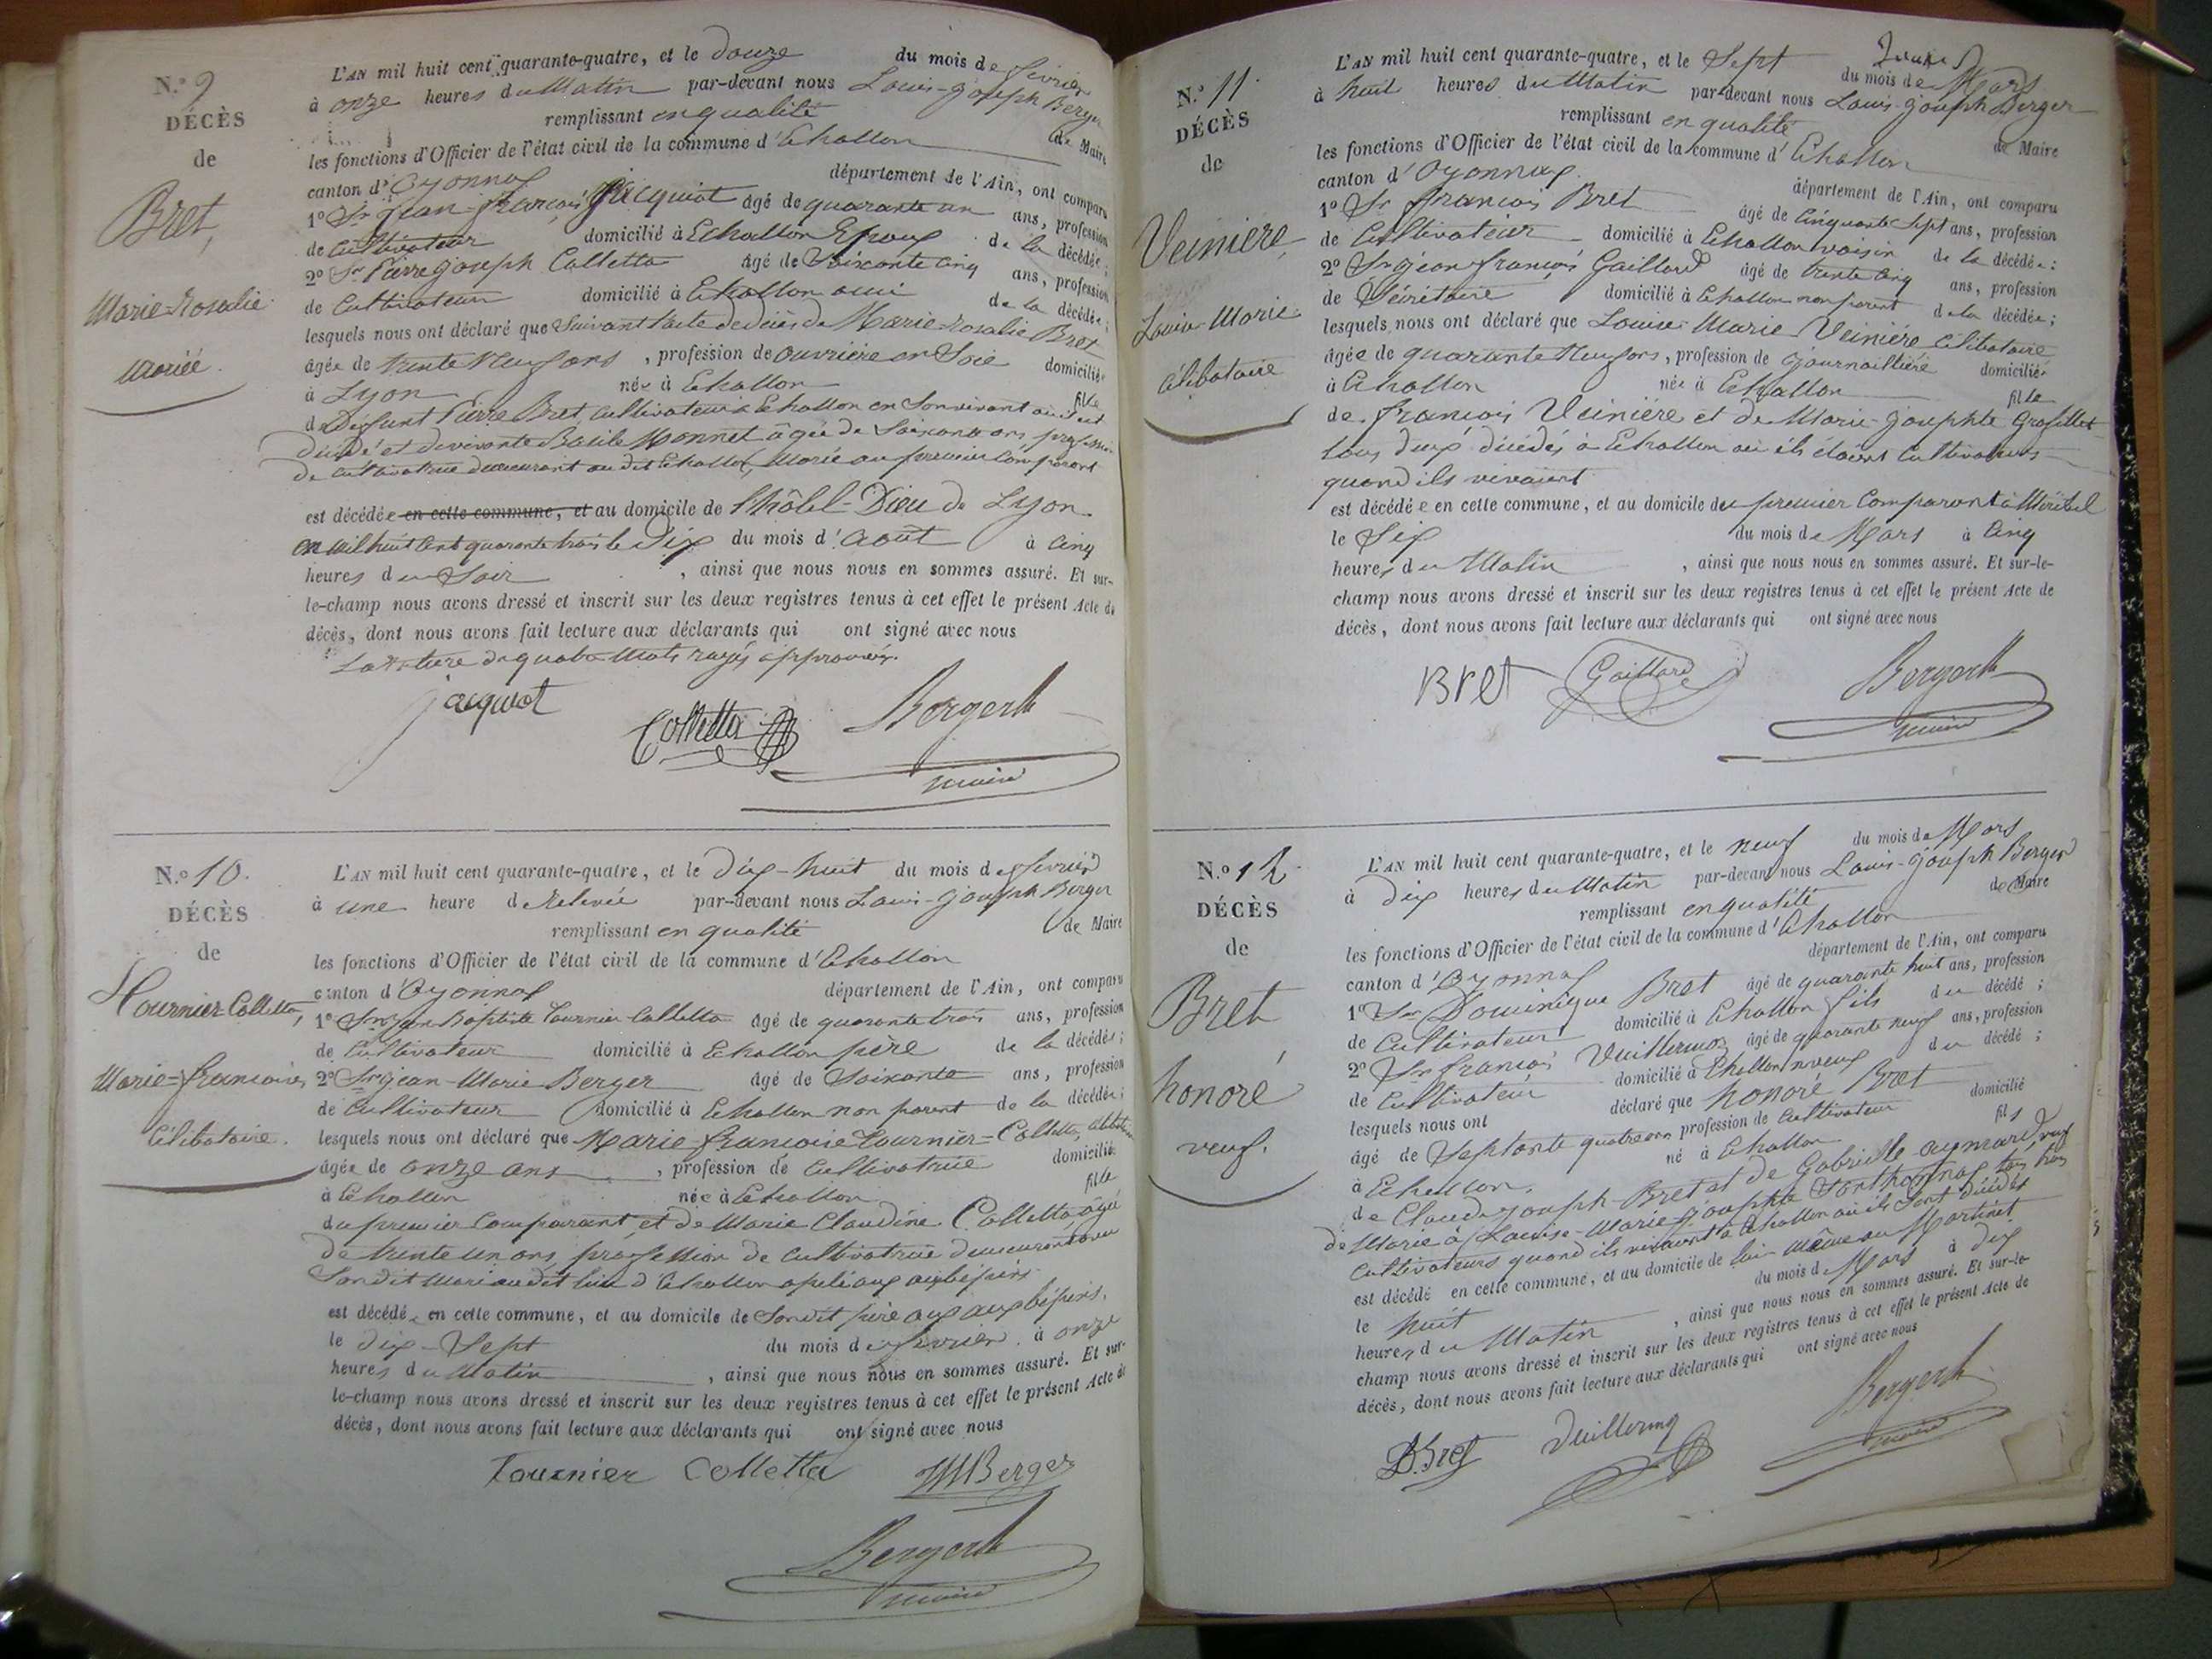 N.º 9
DÉCÈS
de
Bret,
Marie-Rosalie
mariée.
L'AN mil huit cent quarante-quatre, et le douze du mois de février
à onze heures du Matin par-devant nous Louis-Joseph Berger
remplissant en qualité de Maire
les fonctions d'Officier de l'état civil de la commune d'Echallon
canton d'Oyonnax département de l'Ain, ont comparu
1º Sr Jean-François Jacquiot âgé de quarante un ans, profession
de Cultivateur domicilié à Echallon Epoux de la décédée;
2º Sr Pierre Joseph Colletta âgé de Soixante cinq ans, profession
de Cultivateur domicilié à Echallon ami de la décédée;
lesquels nous ont déclaré que Suivant l'acte de décès de Marie-Rosalie Bret
âgée de trente neuf ans, profession de ouvrière en Soie domiciliée
à Lyon née à Echallon fille
de Défunt Pierre Bret, cultivateur à Echallon en Son vivant où il est
décédé et de vivante Basile Monnet âgée de Soixante ans profession
de cultivatrice demeurant au dit Echallon, Mariée au premier Comparant
est décédée en cette commune, et au domicile de l'hôtel-Dieu de Lyon
en mil huit cent quarante trois le Dix du mois d'Août à Cinq
heures du Soir, ainsi que nous nous en sommes assuré. Et sur-
le-champ nous avons dressé et inscrit sur les deux registres tenus à cet effet le présent Acte de
décès, dont nous avons fait lecture aux déclarants qui ont signé avec nous
La rature de quatre Mots rayés approuvés.
Jacquiot Colletta Berger
maire
N.º 10.
DÉCÈS
de
Tournier-Colletta,
Marie-françoise,
Célibataire.
L'AN mil huit cent quarante-quatre, et le dix-huit du mois de février
à une heure de Relevée par-devant nous Louis-Joseph Berger
remplissant en qualité de Maire
les fonctions d'Officier de l'état civil de la commune d'Echallon
canton d'Oyonnax département de l'Ain, ont comparu
1º Sr Jean Baptiste Tournier-Colletta âgé de quarante trois ans, profession
de Cultivateur domicilié à Echallon père de la décédée;
2º Sr Jean-Marie Berger âgé de Soixante ans, profession
de Cultivateur domicilié à Echallon non parent de la décédée;
lesquels nous ont déclaré que Marie-françoise Tournier-Colletta, célibataire
âgée de onze ans, profession de Cultivatrice domiciliée
à Echallon née à Echallon fille
du premier Comparant, et de Marie Claudine Colletta, âgée
de trente un ans, profession de cultivatrice demeurant avec
Son dit Mari au dit lieu d'Echallon
est décédée en cette commune, et au domicile de Son dit père
le dix-Sept du mois de février à onze
heures du Matin, ainsi que nous nous en sommes assuré. Et sur-
le-champ nous avons dressé et inscrit sur les deux registres tenus à cet effet le présent Acte de
décès, dont nous avons fait lecture aux déclarants qui ont signé avec nous
Tournier Colletta JMBerger
Berger
maire
N.º 11.
DÉCÈS
de
Veinière,
Louise-Marie
célibataire
L'AN mil huit cent quarante-quatre, et le Sept du mois de Mars
à huit heures du Matin par-devant nous Louis-Joseph Berger
remplissant en qualité de Maire
les fonctions d'Officier de l'état civil de la commune d'Echallon
canton d'Oyonnax département de l'Ain, ont comparu
1º Sr François Bret âgé de Cinquante Sept ans, profession
de Cultivateur domicilié à Echallon voisin de la décédée;
2º Sr Jean françois Gaillard âgé de trente cinq ans, profession
de Sécrétaire domicilié à Echallon non parent de la décédée;
lesquels nous ont déclaré que Louise-Marie Veinière célibataire
âgée de quarante Neuf ans, profession de Journaillière domiciliée
à Echallon née à Echallon fille
de françois Veinière et de Marie-Josephte Grosillet
tous deux décédés à Echallon où ils étaient Cultivateurs
quand ils vivaient
est décédée en cette commune, et au domicile du premier Comparant à
le Six du mois de Mars à Cinq
heures du Matin, ainsi que nous nous en sommes assuré. Et sur-le-
champ nous avons dressé et inscrit sur les deux registres tenus à cet effet le présent Acte de
décès, dont nous avons fait lecture aux déclarants qui ont signé avec nous
Bret Gaillard Berger
maire
N.º 12.
DÉCÈS
de
Bret
honoré
veuf.
L'AN mil huit cent quarante-quatre, et le neuf du mois de Mars
à dix heures du Matin par-devant nous Louis-Joseph Berger
remplissant en qualité de Maire
les fonctions d'Officier de l'état civil de la commune d'Echallon
canton d'Oyonnax département de l'Ain, ont comparu
1º Sr Dominique Bret âgé de quarante huit ans, profession
de Cultivateur domicilié à Echallon fils du décédé;
2º Sr François Vuillermoz âgé de quarante neuf ans, profession
de Cultivateur domicilié à Echallon neveux du décédé;
lesquels nous ont déclaré que honoré Bret
âgé de Septante quatre ans profession de Cultivateur domicilié
à Echallon. né à Echallon fils
de Claude Joseph Bret et de Gabrielle Aymard, veuf
de Marie à Louise-Marie-Josephte Sonthonnax tous trois
Cultivateurs quand ils vivaient à Echallon où ils Sont décédés
est décédé en cette commune, et au domicile de lui Même au Martinet
le huit du mois de Mars à dix
heures du Matin, ainsi que nous nous en sommes assuré. Et sur-le-
champ nous avons dressé et inscrit sur les deux registres tenus à cet effet le présent Acte de
décès, dont nous avons fait lecture aux déclarants qui ont signé avec nous
D.Bret Vuillermoz Berger
maire